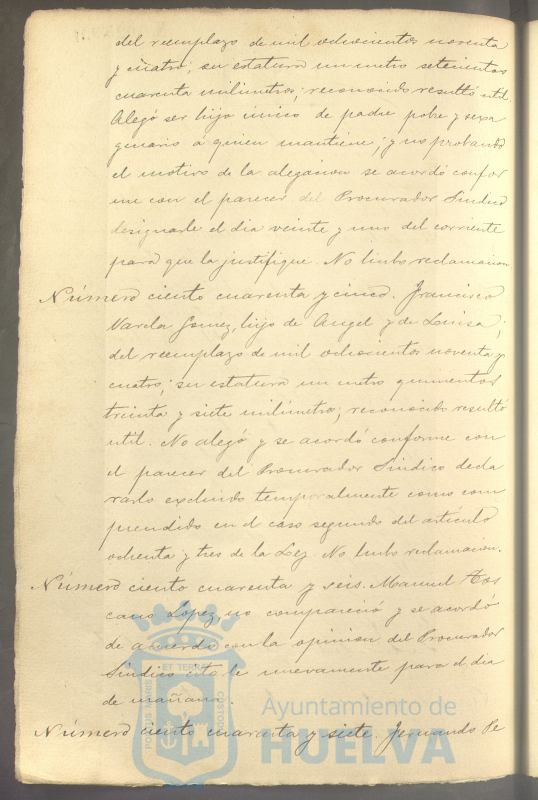 del reemplazo de mil ochocientos noventa
y cuatro; su estatura un metro setecientos
cuarenta milimetros; reconocido resultó util.
Alegó ser hijo único de padre pobre y sexa
genario a quien mantiene; y no probando
el motivo de la alegacion se acordó confor
me con el parecer del Procurador Sindico
designarle el dia veinte y uno del corriente
para que la justifique. No hubo reclamacion
Número ciento cuarenta y cinco. Francisco
Varela Gomez, hijo de Angel y de Luisa;
del reemplazo de mil ochocientos noventa y
cuatro; su estatura un metro quinientos
treinta y siete milimetros; reconocido resultó
util. No alegó y se acordó conforme con
el parecer del Procurador Sindico decla
rarlo excluido temporalmente como com
prendido en el caso segundo del artículo
ochenta y tres de la Ley. No hubo reclamacion.
Número ciento cuarenta y seis. Manuel Tos
cano Lopez, no compareció y se acordó
de acuerdo con la opinion del Procurador
Sindico citarle nuevamente para el dia
de mañana.
Número ciento cuarenta y siete. Fernando Pe
ET TERRAE
PORTUS MARIS
CUSTODIA
Ayuntamiento de
HUELVA